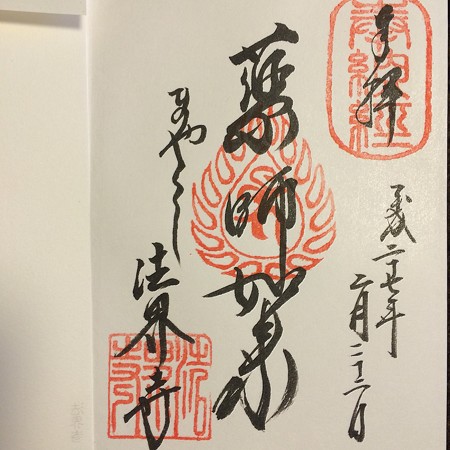 奉拝
平成二十七年二月二十二日
薬師如来
ひのやくし
法界寺